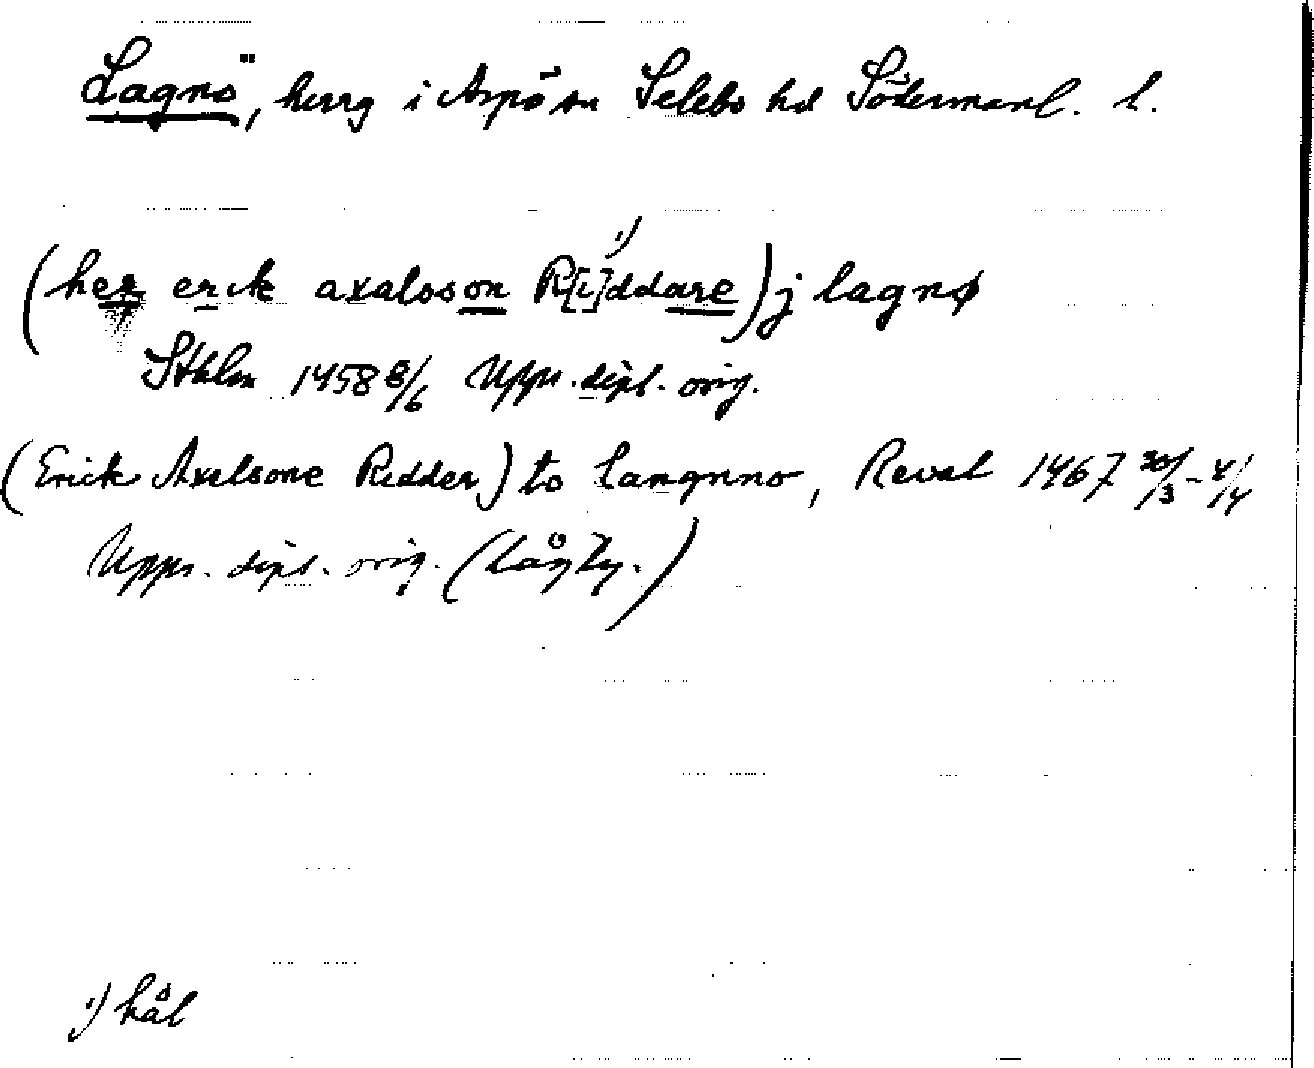 Lagnö, herrg i Aspö sn Selebo hd Södermanl. l.
(her erick axalosson R[i]ddare)¹⁾ j lagnø
Sthlm 1458 8/6 Upps. dipl. orig.
(Erick Axelsone Ridder) to langnno, Reval 1467 30/3 - 4/4
Upps. dipl. orig. (Lågty.)
¹⁾ hål